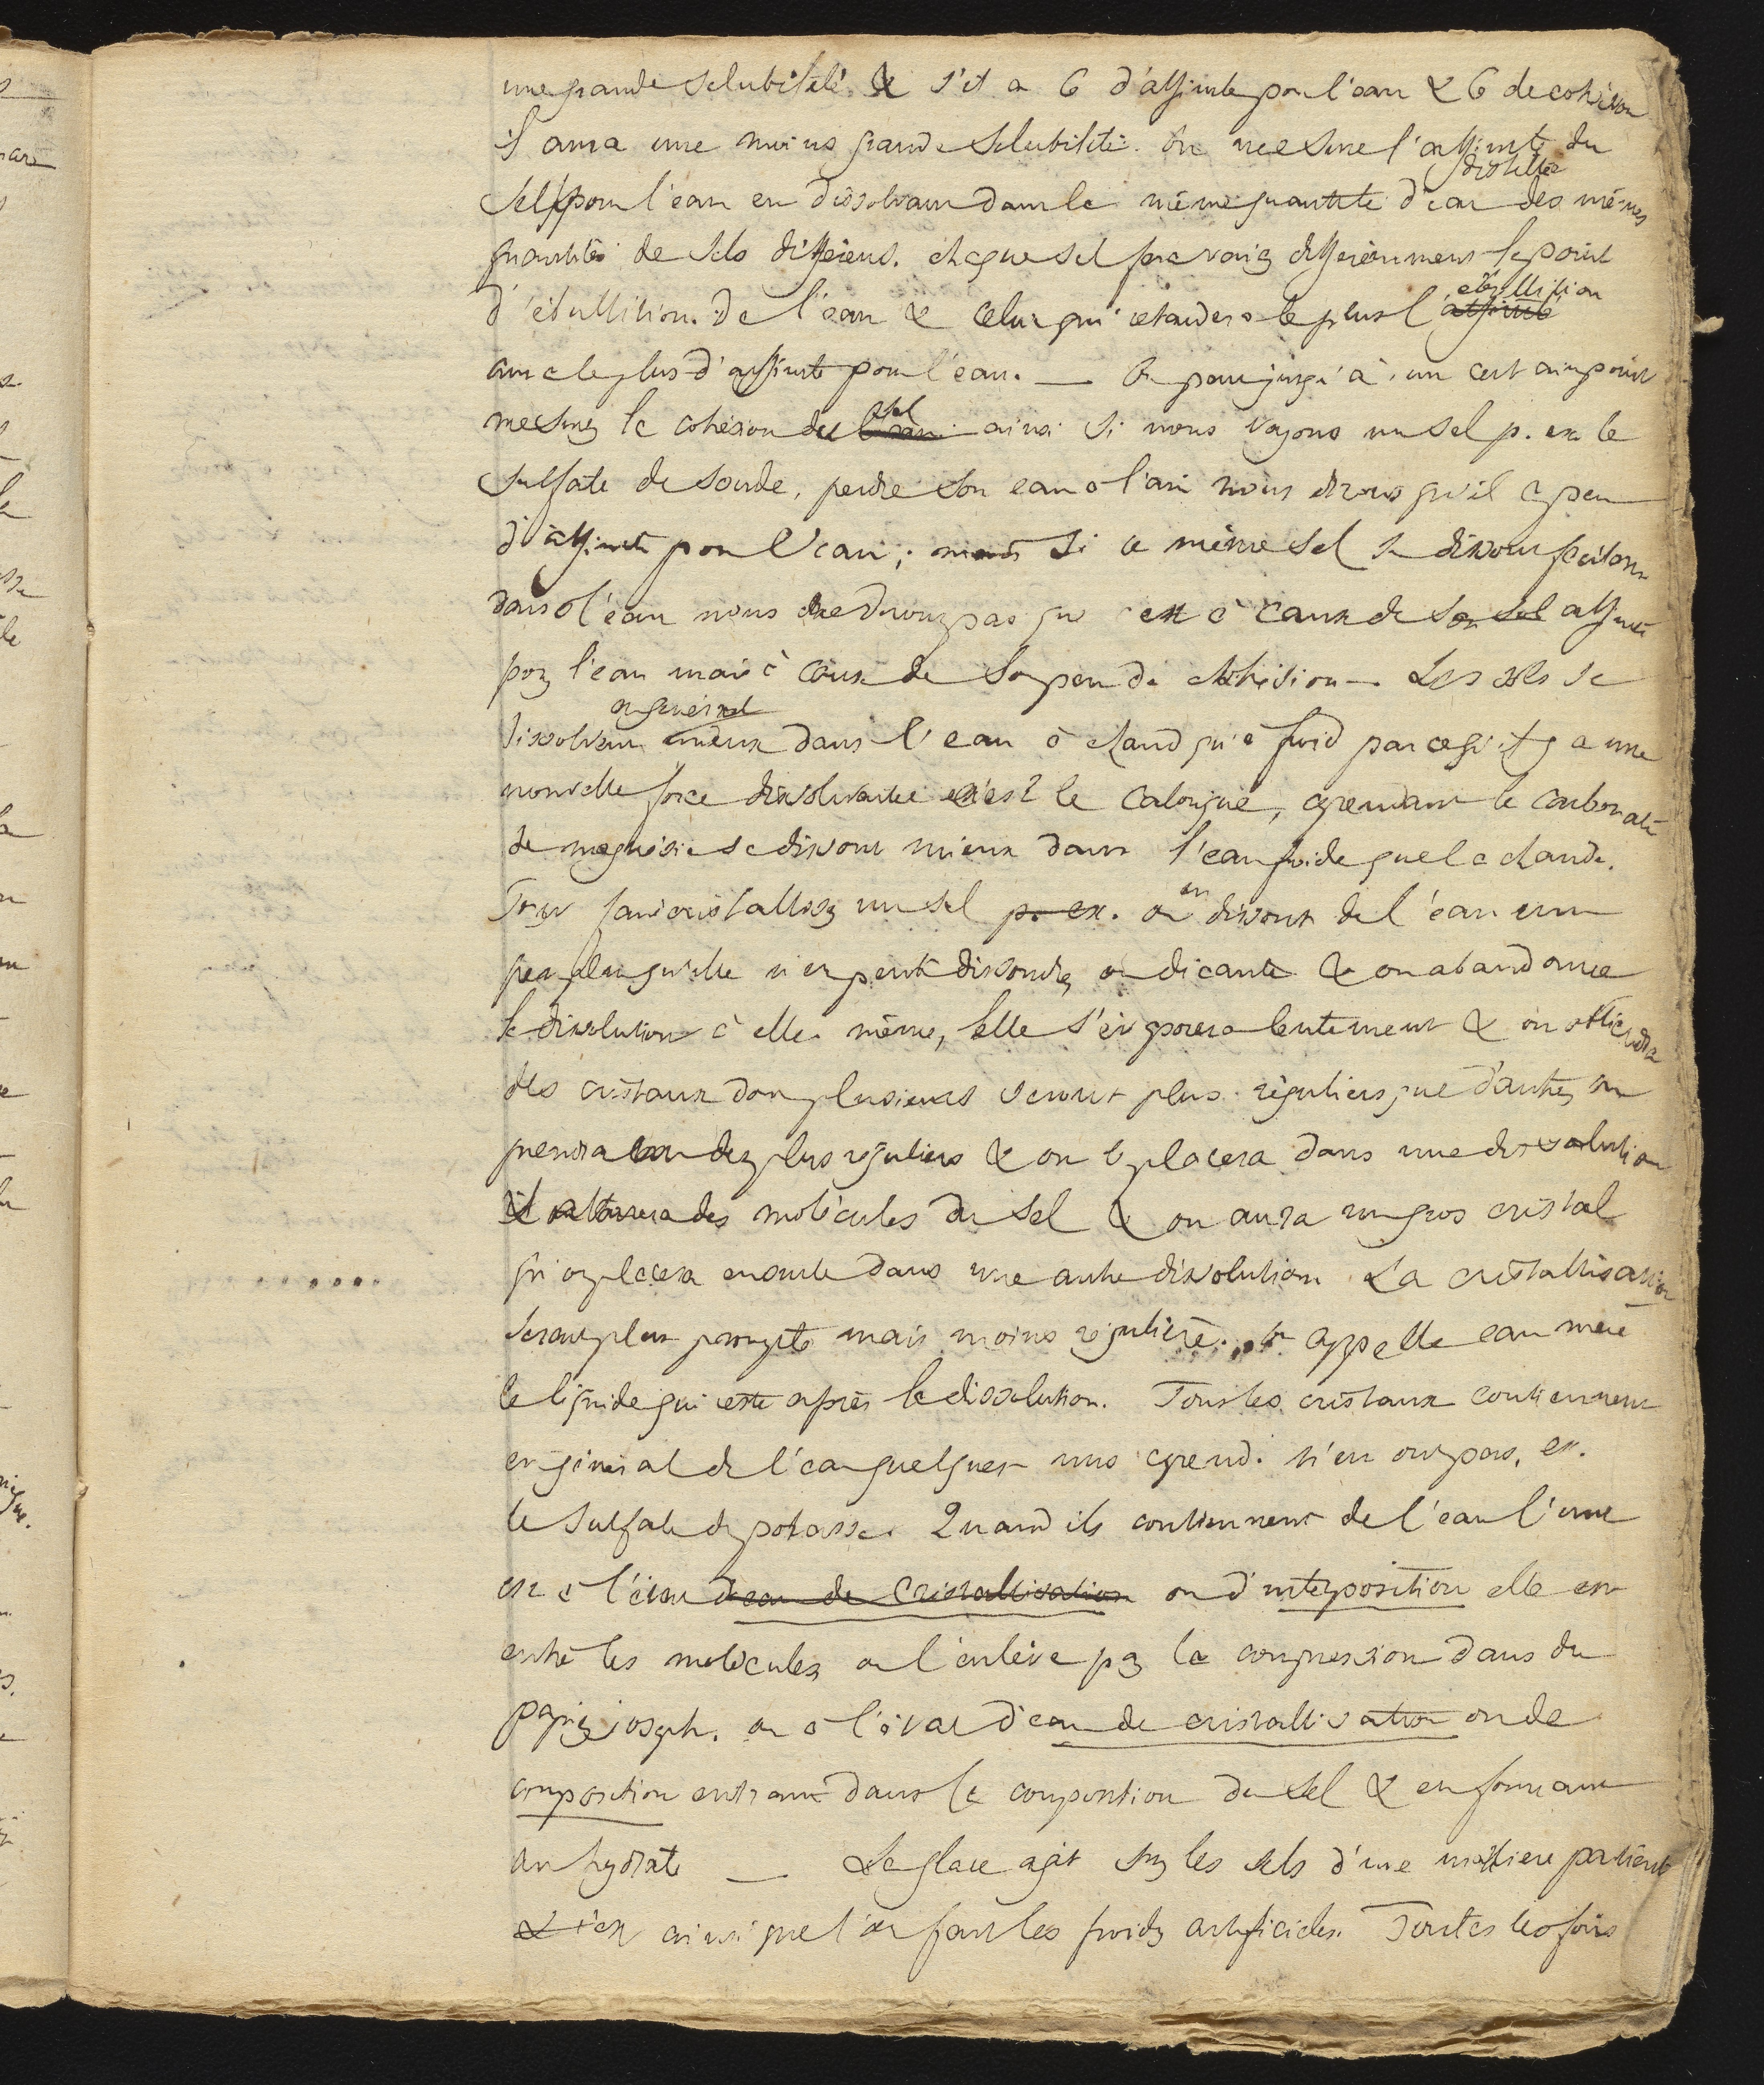 une grande solubilité & s'il a 6 d'affinité pour l'eau & 6 de cohésion
il aura une moins grande solubilité. On mesure l'affinité du
distillée
sel pour l'eau en dissolvant dans la même quantité d'eau des mêmes
quantités de sels différens. chaque sel fera varier différemment le point
ébullition
d'ébullition de l'eau & celui qui retardera le plus l'affinité
aura le plus d'affinité pour l'eau. — On peut jusqu'à un certain point
sel
mesurer la cohésion du ainsi si nous voyons un sel p. ex. le
sulfate de soude, perdre son eau à l'air nous dirons qu'il a peu
d'affinité pour l'eau; mais si ce même sel se dissout facilem
dans l'eau nous ne dirons pas que c'est à cause de son sel affinité
pour l'eau mais à cause de son peu de cohésion — Les sels se
en général
dissolvent mieux dans l'eau à chaud qu'à froid parce qu'il y a une
nouvelle force dissolvante c'est le calorique, cependant le carbonate
de magnésie se dissout mieux dans l'eau froide que la chaude.
en
Pour faire cristalliser un sel p. ex. on dissout de l'eau un
peu plus qu'elle n'en peut dissoudre, on décante & on abandonne
la dissolution à elle même, elle s'évaporera lentement & on obtiendra
des cristaux dont plusieurs seront plus réguliers que d'autres, on
prendra un des plus réguliers & on le placera dans une dissolution
il attirera des molécules du sel & on aura un gros cristal
qu'on placera ensuite dans une autre dissolution. La cristallisation
serait plus prompte mais moins régulière. On appelle eau mère
le liquide qui reste après la dissolution. Tous les cristaux contiennent
en général de l'eau quelques uns cepend. n'en ont pas, ex.
le sulfate de potasse. Quand ils contiennent de l'eau l'une
est à l'état d'eau de cristallisation ou d'interposition elle est
entre les molécules on l'enlève par la compression dans du
papier joseph. ou à l'état d'eau de cristallisation ou de
composition entrant dans la composition du sel & en formant
un hydrate — La glace agit sur les sels d'une manière particul
ainsi que l'on fait les froids artificiels. Toutes les fois